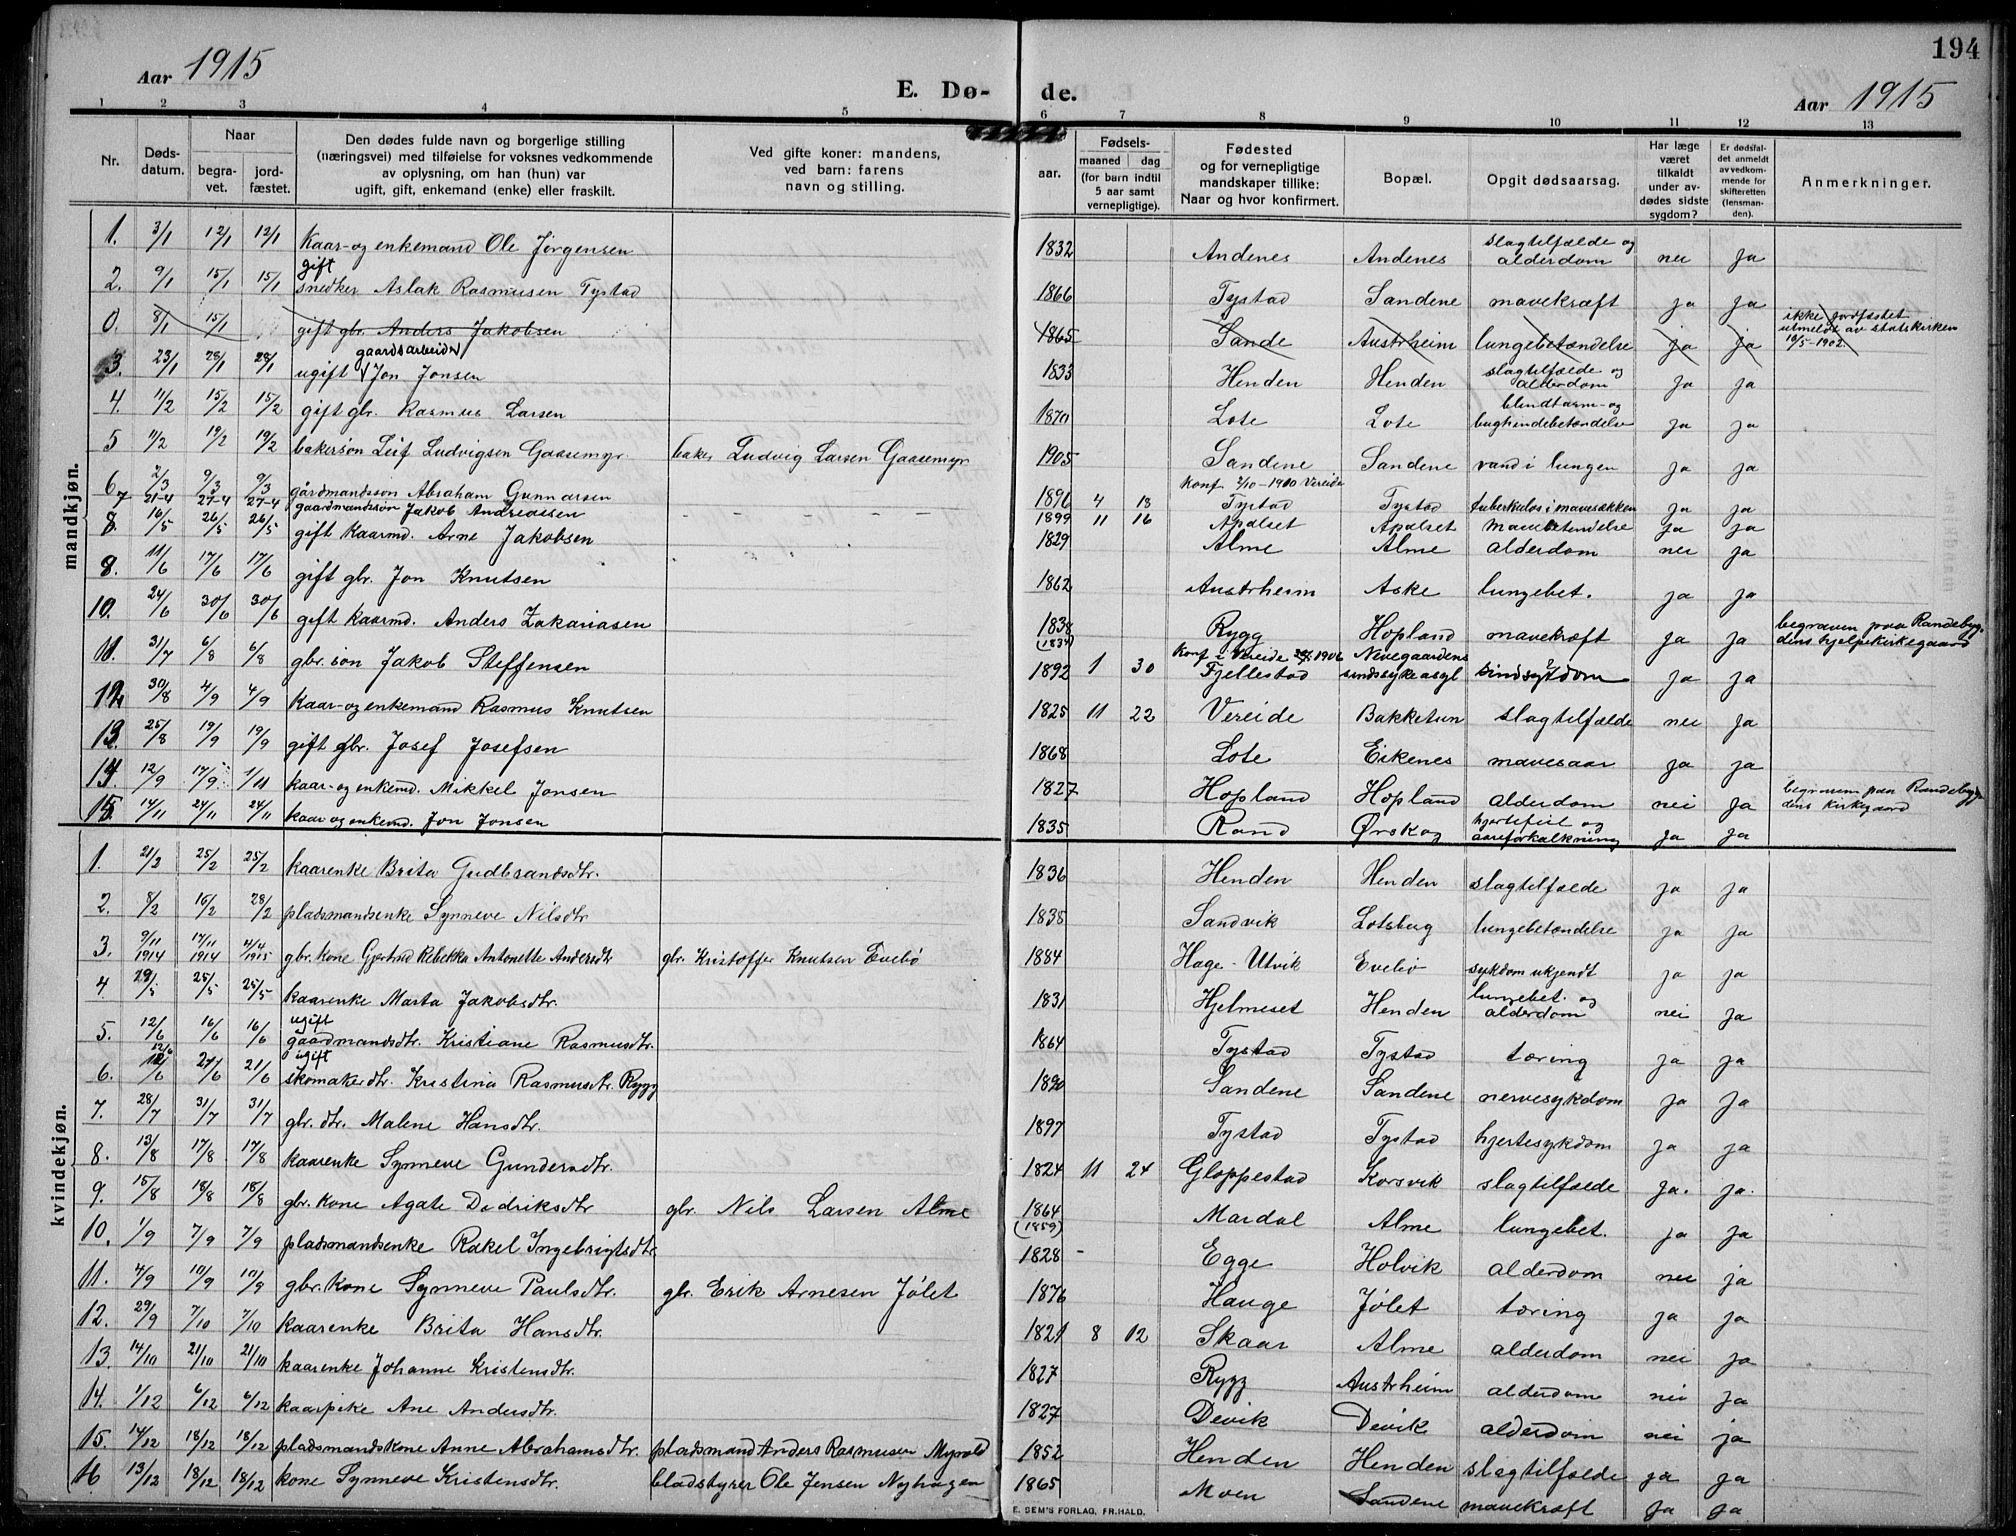 194
Aar 1915
E. Dø-
de.
Aar 1915
1 2 3 4 5 6 7 8 9 10 11 12 13
Nr.
Døds-
datum.
Naar
begra-
vet.
jord-
fæstet.
Den dødes fulde navn og borgerlige stilling
(næringsvei) med tilføielse for voksnes vedkommende
av oplysning, om han (hun) var
ugift, gift, enkemand (enke) eller fraskilt.
Ved gifte koner: mandens,
ved barn: farens
navn og stilling.
aar.
Fødsels-
maaned dag
(for barn indtil
5 aar samt
vernepligtige).
Fødested
og for vernepligtige
mandskaper tillike:
Naar og hvor konfirmert.
Bopæl.
Opgit dødsaarsag.
Har læge
været
tilkaldt
under av-
dødes sidste
sygdom?
Er dødsfal-
det anmeldt
av vedkom-
mende for
skifteretten
(lensman-
den).
Anmerkninger.
mandkjøn.
1. 3/1 12/1 12/1 Kaar- og enkemand Ole Jørgensen 1832 Andenes Andenes slagtilfælde og alderdom nei ja
2. 9/1 15/1 15/1 gift snedker Aslak Rasmusen Tystad 1866 Tystad Sandene mavekræft ja ja
0. 8/1 15/1 gift gbr. Anders Jakobsen 1865 Sande Austrheim lungebetændelse ja ja ikke jordfæstet utmeldt av statskirken 10/5-1902.
3. 23/1 28/1 28/1 ugift gaardsarbeider Jon Jonsen 1833 Henden Henden slagtilfælde og alderdom ja ja
4. 11/2 15/2 15/2 gift gbr. Rasmus Larsen 1870 Lote Lote blindtarm- og bughindebetændelse ja ja
5 11/2 19/2 19/2 bakersøn Leif Ludvigsen Gaasemyr baker Ludvig Larsen Gaasemyr 1905 Sandene Sandene vand i lungen ja ja
6 2/3 9/3 9/3 gårdmandssøn Abraham Gunnarsen 1896 4 13 Konf 2/10-1910 Vereide Tystad Tystad tuberkulos i mavesækken ja ja
7 21-4 27-4 27-4 gaardmandssøn Jakob Andreassen 1899 11 16 Apalset Apalset mavebetendelse ja ja
8. 16/5 26/5 26/5 gift kaarmd. Arne Jakobsen 1829 Alme Alme alderdom nei ja
8. 11/6 17/6 17/6 gift gbr. Jon Knutsen 1862 Austrheim Aske lungebet. ja ja
10. 24/6 30/6 30/6 gift kaarmd. Anders Zakariasen 1838 (1837) Rygg Hopland mavekræft ja ja begraven paa Randebyg- dens hjelpekirkegaard
11. 31/7 6/8 6/8 gbr. søn Jakob Steffensen 1892 1 30 Konf i Vereide 1906 Fjellestad Nevegaardens sindssykeasyl sindssygdom ja ja
12. 30/8 4/9 4/9 Kaar- og enkemand Rasmus Knutsen 1825 11 22 Vereide Bakketun slagtilfælde nei ja
13. 25/8 19/9 19/9 gift gbr. Josef Josefsen 1868 Lote Eikenes mavesaar ja ja
14. 12/9 17/9 1/11 kaar- og enkemd. Mikkel Jonsen 1827 Hopland Hopland alderdom nei ja begraven paa Randebyg- dens kirkegaard
15. 14/11 24/11 24/11 kaar og enkemd. Jon Jonsen 1835 Rand Ørskog hjertefeil og aareforkalkning ja ja
kvindekjøn.
1. 21/2 25/2 25/2 kaarenke Brita Gudbrandsdtr. 1836 Henden Henden slagtilfælde ja ja
2. 8/2 16/2 28/2 pladsmandsenke Synneve Nilsdtr 1838 Sandvik Lotsberg lungebetændelse ja ja
3. 9/11 1914 17/11 1914 4/4 1915 gbr. kone Gjertrud Rebekka Antonette Andersdtr gbr. Kristoffer Knutsen Evebø 1884 Hage - Utvik Evebø sykdom ukjendt ja ja
4. 20/5 25/5 25/5 kaarenke Marta Jakobsdtr. 1831 Hjelmeset Henden lungebet. og alderdom nei ja
5. 12/6 16/6 16/6 ugift gaardmandsdtr. Kristiane Rasmusdtr. 1864 Tystad Tystad tæring ja ja
6. 12/6 21/6 21/6 ugift skomakerdtr. Kristina Rasmusdtr. Rygg 1890 Sandene Sandene nervesykdom ja ja
7. 28/7 31/7 31/7 gbr. dtr. Malene Hansdtr. 1897 Tystad Tystad hjertesykdom ja ja
8. 13/8 17/8 17/8 kaarenke Synneve Gundersdtr. 1824 11 24 Gloppestad Korsvik slagtilfælde ja. ja.
9. 15/8 18/8 18/8 gbr. kone Agate Didriksdtr gbr. Nils Larsen Alme 1864 (1859) Mardal Alme lungebet. ja ja
10. 1/9 7/9 7/9 pladsmandsenke Rakel Ingebrigtsdtr. 1828 - Egge Holvik alderdom nei ja
11. 4/9 10/9 10/9 gbr. kone Synneve Paulsdtr. gbr. Erik Arnesen Jølet 1876 Hauge Jølet tæring ja ja
12. 29/9 7/10 7/10 kaarenke Brita Hansdtr. 1821 8 12 Skaar Alme alderdom nei ja
13. 14/10 21/10 21/10 kaarenke Johanne Kristensdtr. 1827 Rygg Austrheim alderdom nei ja
14. 1/12 6/12 6/12 kaarpike Ane Andersdtr. 1827 Devik Devik alderdom nei ja
15. 14/12 18/12 18/12 pladsmandskone Anne Abrahamsdtr. pladsmand Anders Rasmusen Myrold 1852 Henden Henden slagtilfælde ja ja
16 13/12 18/12 18/12 kone Synneve Kristensdtr. bladstyrer Ole Jensen Nyhagen 1865 Moen Sandene mavekræft ja ja
E. SEM'S FORLAG, FR.HALD.